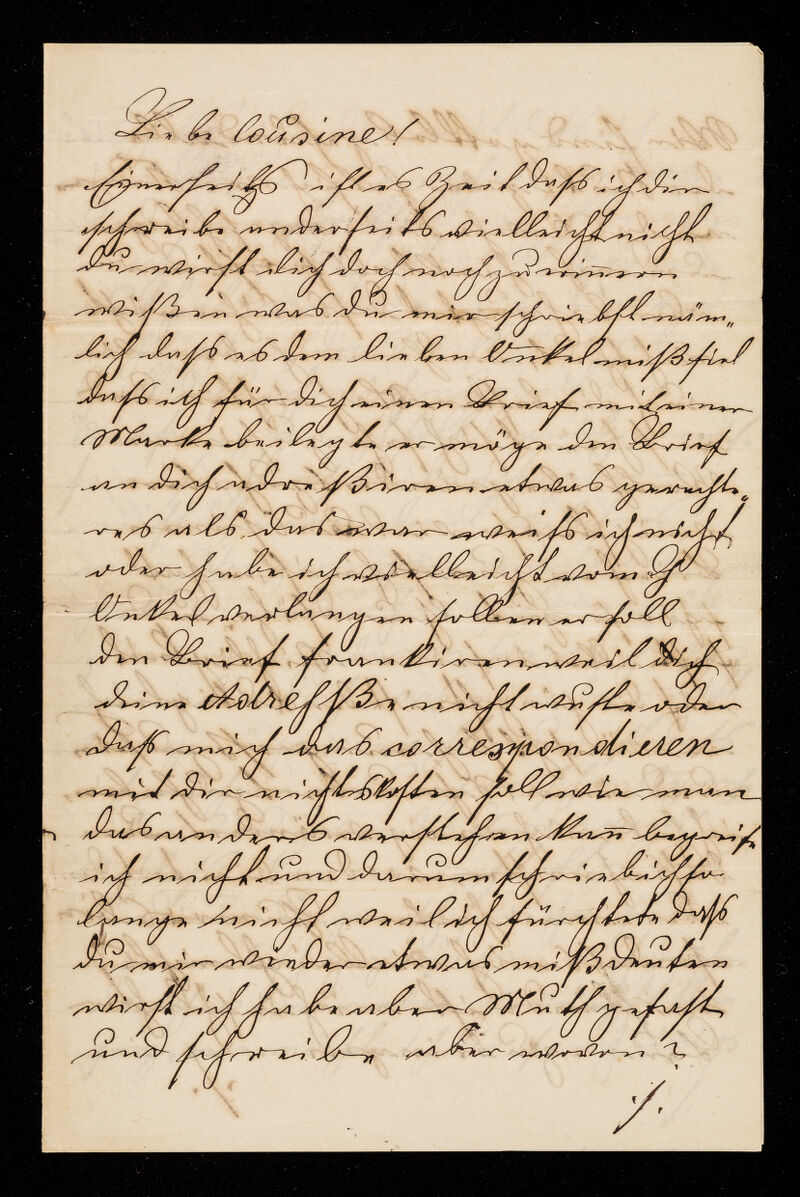 Liebe Cousine!
Einerseits ist es Zeit dass ich dir
schreibe anderseits vielleicht nicht
du wirst dich doch noch zu erinnern
wißen was du mir schriebst näm-
lich dass es dem lieben Onkel mißfiel
dass ich für dich einen Brief mit einer
Marke beilegte er möge den Brief
an dich adreßiren etwas gerechte-
res als das war weiss ich nicht
oder habe ich vielleicht vom
Onkel verlangen sollen er soll
den Brief frankiren weil ich
deine Adrehsße nicht wuste oder
dass mich das correspondieren
mit dir nichts kosten soll wie man
das anders verstehen kann begreife
ich nicht und darum schrieb ich so
lange nicht weil ich fürchtete dass
du mir wieder etwas mißdeuten
wirst ich habe aber Muth gefast
und schreibe aber wovon?
./.